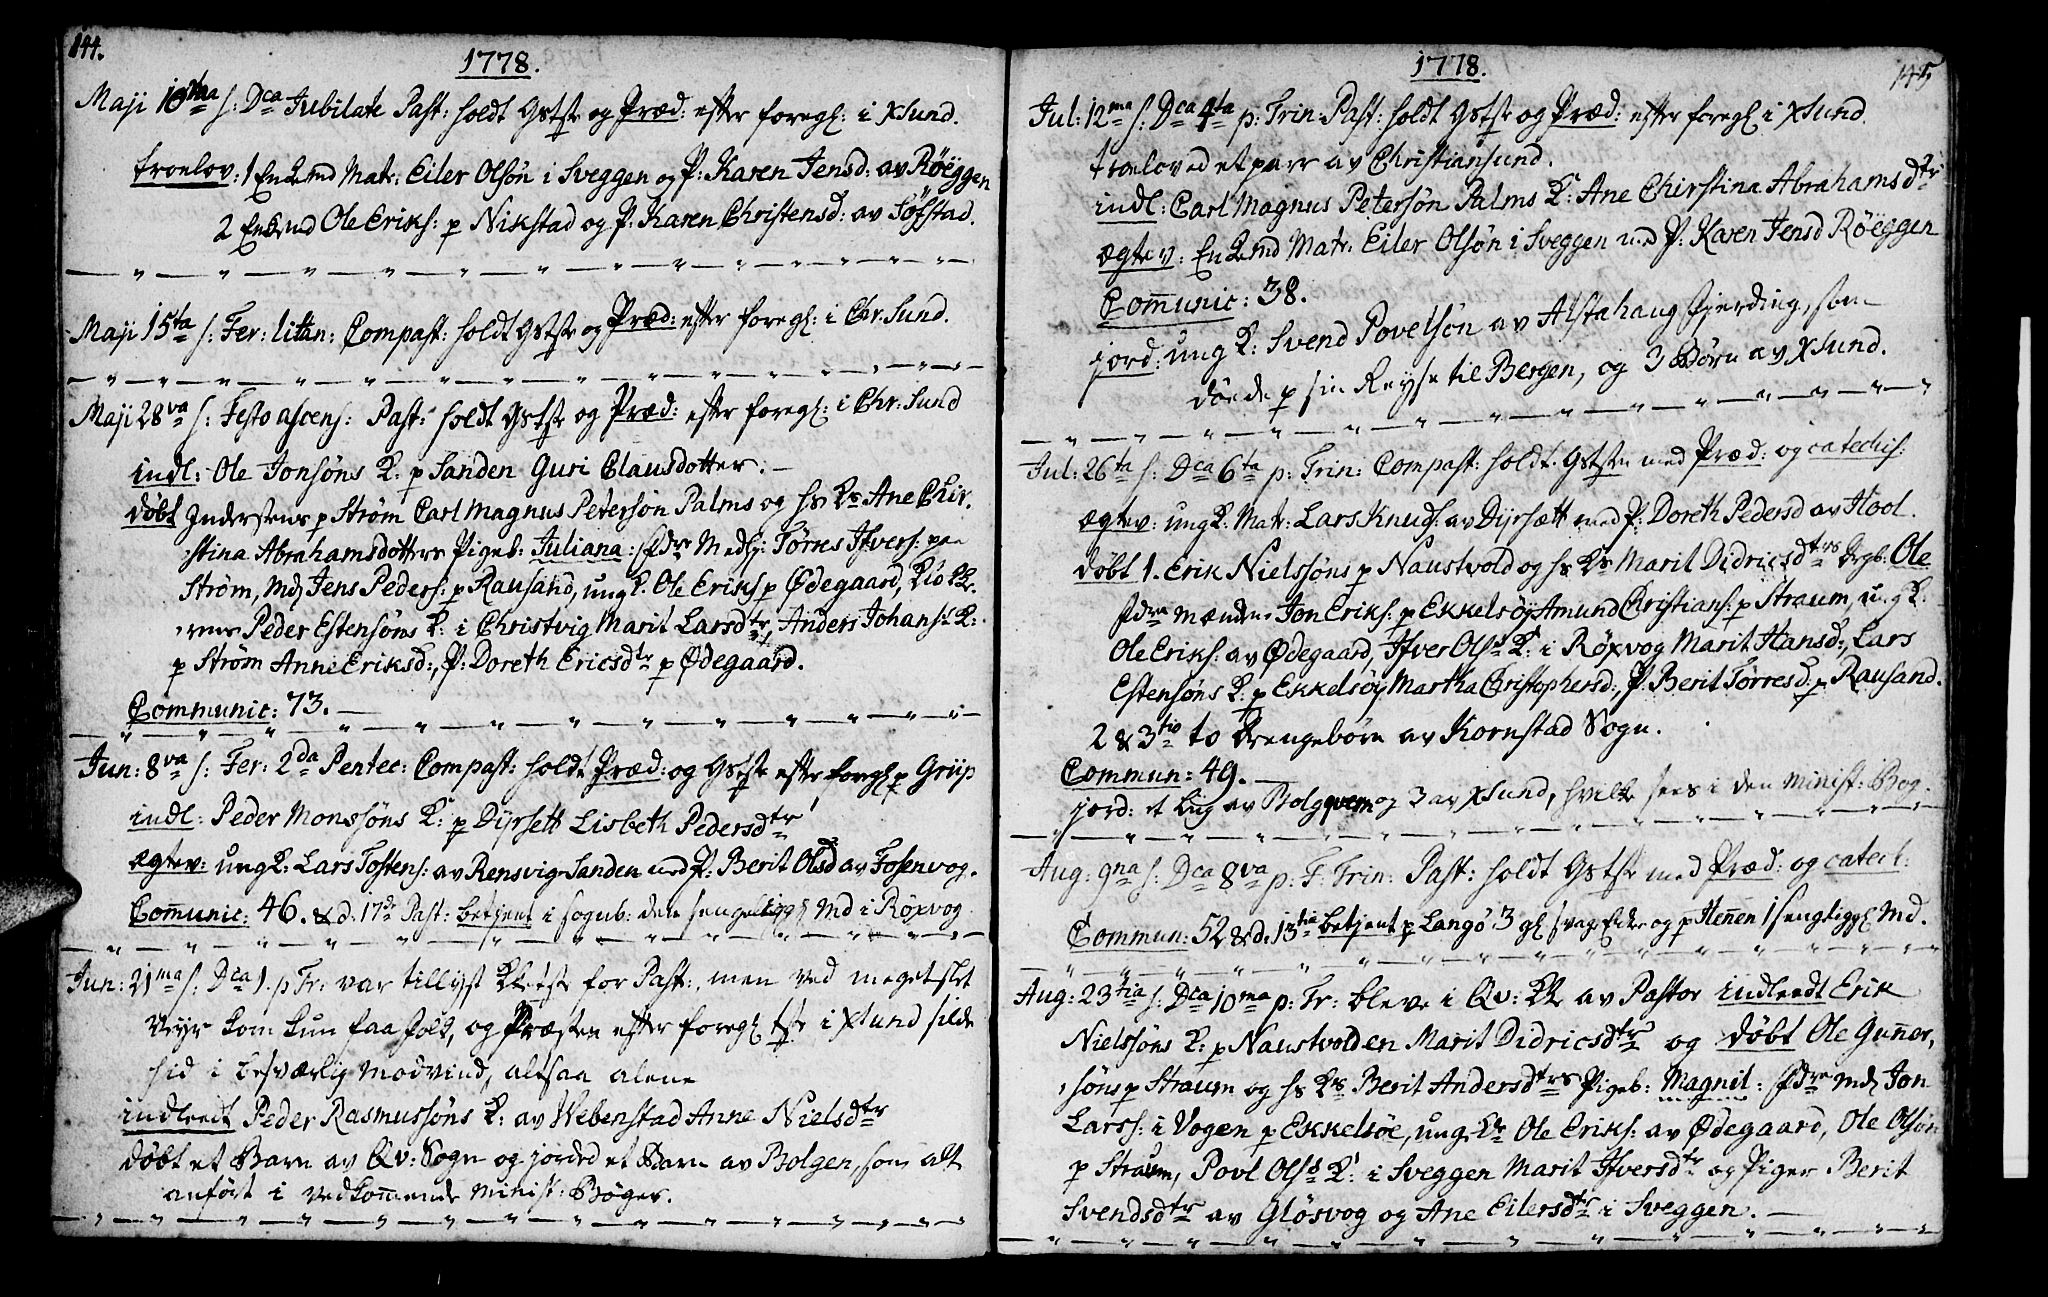 144.
1778.
Maji 10ma s: Dca Jubilate Past: holdt Gstste og Præd: efter foregl: i Xsund.
trolov: 1 Enkemd Matr: Eiler Olsøn i Sveggen og P: Karen Jensd: av Røeggen
2 Enkemd Ole Eriks: p Nikstad og P: Karen Christensd: av Søfstad.
Maji 15ta s: Fer: litan: Compast: holdt Gstste og Præd: efter foregl: i Chr. Sund.
Maji 28va s: Festo ascens: Past: holdt Gstste og Præd: efter foregl: i Chr: Sund
indl: Ole Jonsøns K: p Sanden Guri Clausdotter.
døbt Inderstens p Strøm Carl Magnus Petersøn Palms og hs Ks Ane Chir-
stina Abrahamsdotters Pigeb: Juliana: fdre Medhj: Tørres Ifvers: paa
Strøm, Md Jens Peders: p Rausand, ung K. Ole Eriks p Ødegaard,
Peder Estensøns K: i Christvig Marit Larsdtr, Anders Johans: K:
p Strøm Anne Eriksd:, P: Doreth Ericsdtr p Ødegaard.
Communic: 73.
Jun: 8va s: Fer: 2da Pentec: Compast: holdt Præd: og Gstste efter foregl p Grip
indl: Peder Monssøns K: p Dyrsett Lisbeth Pedersdtr
ægtev: ung K: Lars Tostens: av Rensvig-Sanden med P: Berit Olsd av Fosenvog.
Com̄unic: 46. & d. 17de Past: betjent i sognb: den sengeliggl Md i Røxvog
Jun: 21ma s: Dca 1. p Tr: var tillyst for Past:, men ved meget slet
Veyr kom kun faa folk, og Præsten efter foregl i Xsund silde
hid i besværlig Modvind, altsaa alene
indleedt Peder Rasmussøns K: av Webenstad Anne Nielsdtr
døbt et Barn av Qv: Sogn og jorded et Barn av Bolgen, som alt
anført i vedkom̄ende Minist: Bøger.
1778.
145
Jul: 12ma s: Dca 4ta p: Trin: Past: holdt Gstste og Præd: efter foregl i Xsund.
troloved et parr av Christiansund.
indl: Carl Magnus Petersøn Palms K: Ane Chirstina Abrahamsdtr
ægtev: Enkemd Matr: Eiler Olsøn i Sveggen med P: Karen Jensd Røeggen
Com̄unic: 38.
jord: ung K: Svend Povelsøn av Alstahaug Fjerding, som
døede p sin Reyse til Bergen, og 3 Børn av Xsund.
Jul: 26ta s: Dca 6ta p: Trin: Compast: holdt Gstste med Præd: og catechis:
ægtev: ung K: Matr: Lars Knuds: av Dyrsætt med P: Doreth Pedersd av Hool.
døbt 1. Erik Nielssøns p Naustvold og hs Ks Marit Didricsdtrs Drgb: Ole
fdre mændene Jon Eriks: p Ekkelsøy Amund Christians: p Straum, ung K:
Ole Eriks: av Ødegaard, Ifver Ols: K: i Røxvog Marit Hansd:, Lars
Estensøns K: p Ekkelsøy Martha Christophersd:, P: Berit Tørresd: p Rausand.
2 & 3tio to Drengebørn av Kornstad Sogn.
Commun: 49.
jord: et Lig av Bolgqvem og 3 av Xsund, hvilke sees i den Minist: Bog.
Aug: 9na s: Dca 8va p: F: Trin: Past: holdt Gstste med Præd: og catech:
Commun: 52 & d. 13tia betjent p Langø 3 gl svage Folk og p Hen̄en 1 sengliggl Md.
Aug: 23tia s: Dca 10ma p: Tr: bleve i Qv: Kk av Pastor indleedt Erik
Nielssøns K: p Naustvolden Marit Didricsdtr og døbt Ole Gun̄er-
søns p Straum og hs Ks Berit Andersdtrs Pigeb: Magnil: fdre Md Jon
Larss: i Vogen p Ekkelsøe, ung Kr Ole Eriks: av Ødegaard, Ole Olsøn
p Straum, Povl Olss K: i Sveggen Marit Ifversdtr og Piger Berit
Svendsdtr av Gløsvog og Ane Eilersdtr i Sveggen.